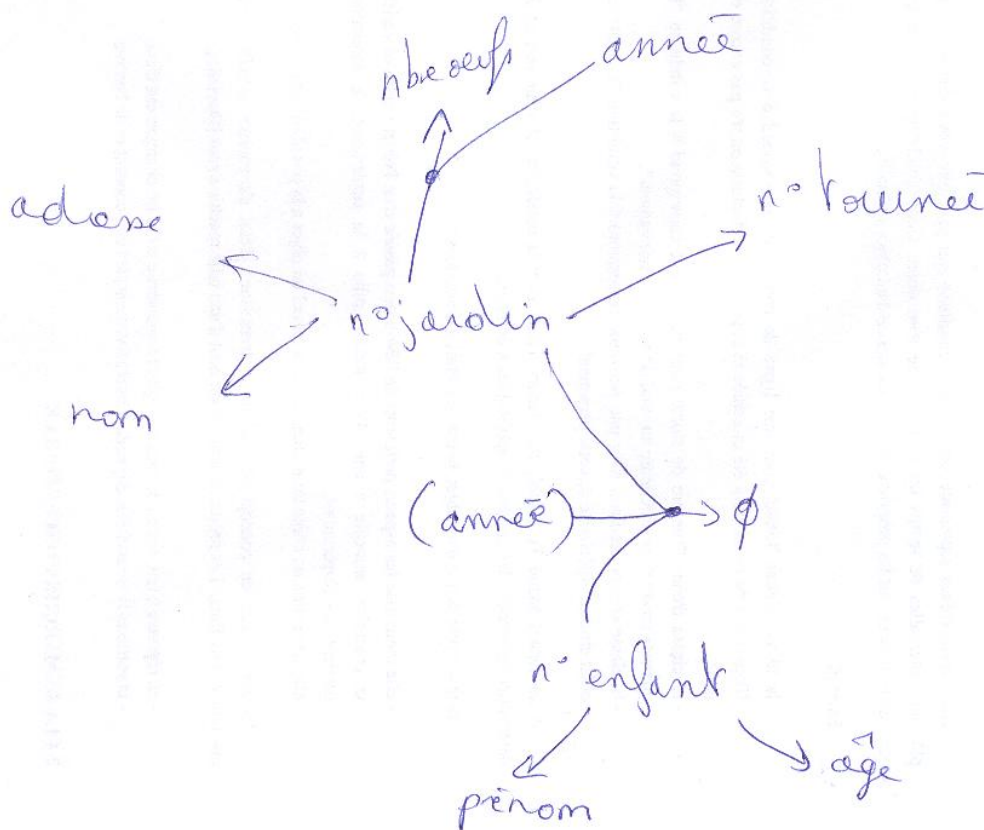 nbre oeufs
année
adresse
n° tournée
n° jardin
nom
(année)
φ
n° enfant
prénom
âge